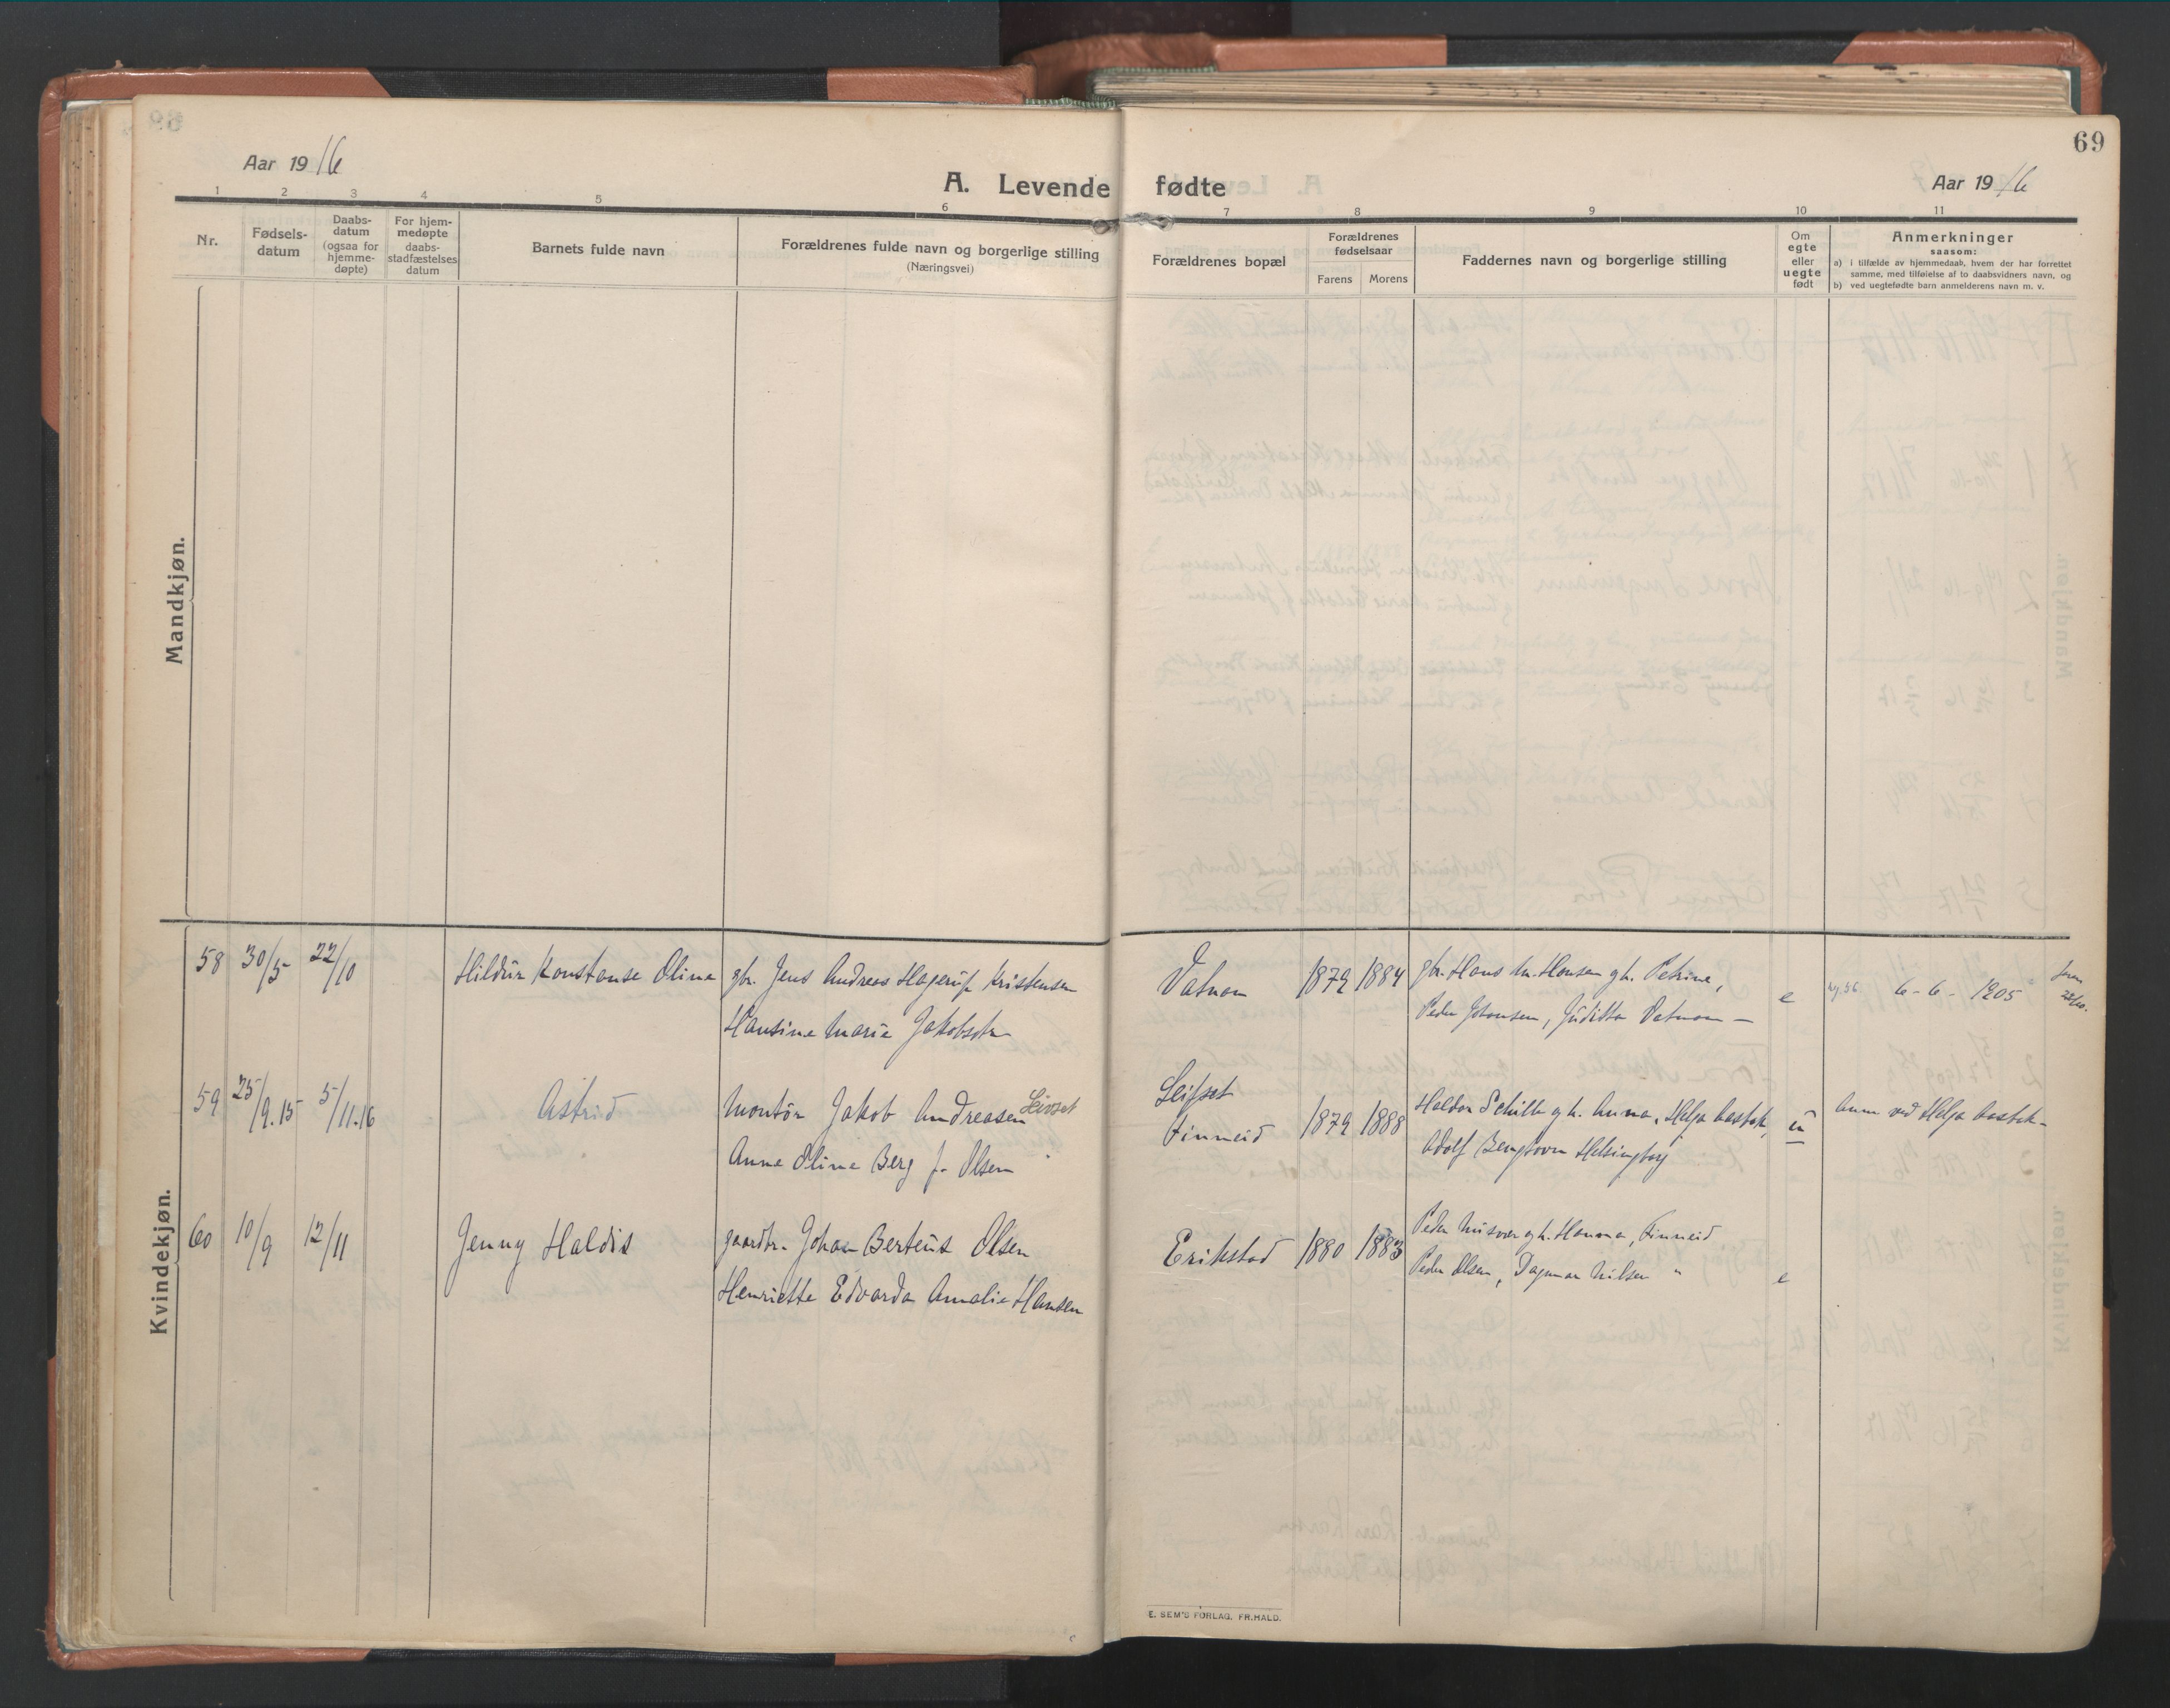 69
Aar 1916
A. Levende fødte
Aar 1916
1 2 3 4 5 6 7 8 9 10 11
Nr.
Fødsels-
datum
Daabs-
datum
(ogsaa for
hjemme-
døpte)
For hjem-
medøpte
daabs-
stadfæstelses
datum
Barnets fulde navn
Forældrenes fulde navn og borgerlige stilling
(Næringsvei)
Forældrenes bopæl
Forældrenes
fødselsaar
Farens Morens
Faddernes navn og borgerlige stilling
Om
egte
eller
uegte
født
Anmerkninger
saasom:
a) i tilfælde av hjemmedaab, hvem der har forrettet
samme, med tilføielse af to daabsvidners navn, og
b) ved uegtefødte barn anmelderens navn m. v.
Mandkjøn.
Kvindekjøn.
58 30/5 22/10 Hildur Konstanse Oline gbr. Jens Andreas Hagerup Kristensen
Hansine Marie Jakobsdtr
Vatnan 1879 1884 gbr. Hans M. Hansen g h. Petrine,
Peder Johansen, Juditta Vatnan —
e 6-6-1905
59 25/9.15 5/11.16 Astrid Montør Jakob Andreasen Leivset
Anne Oline Berg f. Olsen
Leifset
Finneid 1879 1888 Haldor Schille g h. Anna, Helga
Adolf Bengtson Helsingborg
u Anm ved Helga
60 10/9 12/11 Jenny Haldis gaardbr. Johan Berteus Olsen
Henriette Edvarda Amalie Hansen
Erikstad 1880 1883 Peder Misvær g h. Hanna, Finneid
Peder Olsen, Dagmar Nilsen "
e
E. SEM'S FORLAG, FR.HALD.